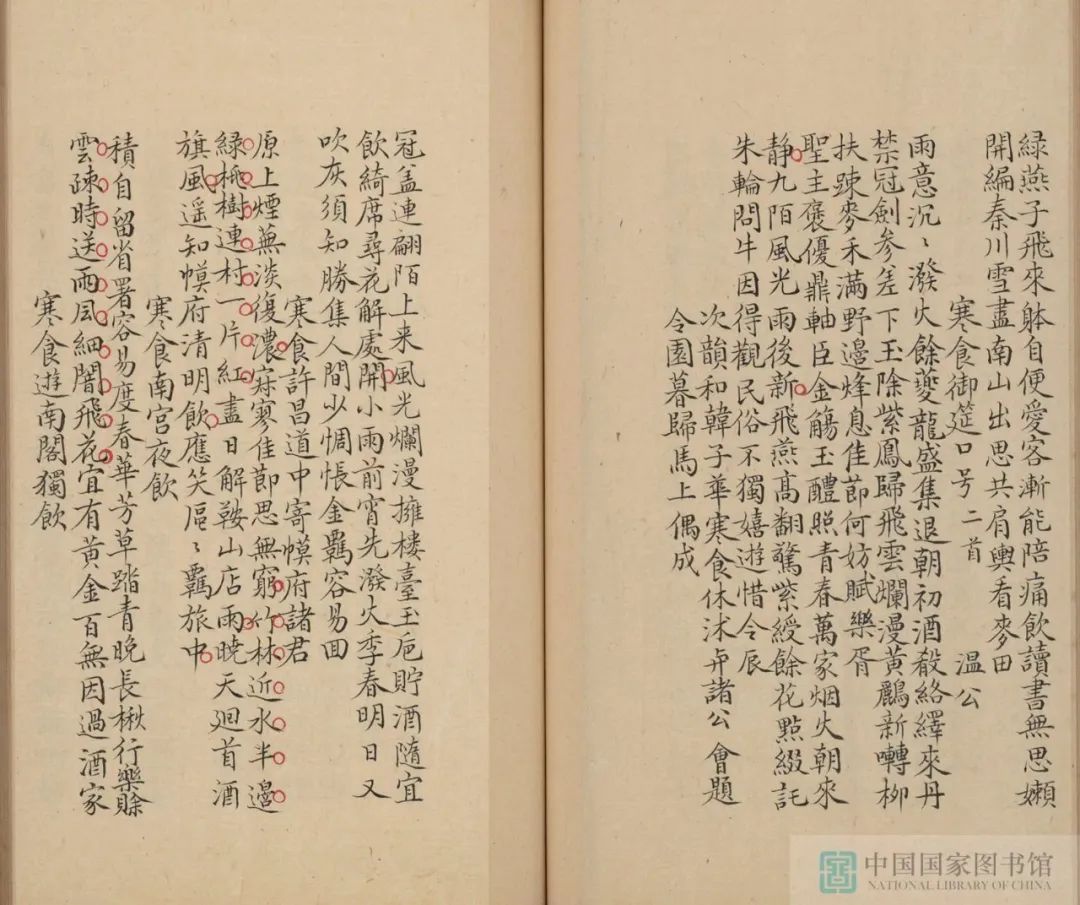 綠燕子飛來躰自便愛客漸能陪痛飲讀書無思嬾
開編秦川雪盡南山出思共肩輿看麥田
寒食御筵口号二首 温公
雨意沉〻潑火餘夔龍盛集退朝初酒殽絡繹來丹
禁冠劍參差下玉除紫鳳歸飛雲爛漫黃鸝新囀柳
扶踈麥禾滿野邊烽息佳節何妨賦樂胥
聖主褒優鼎軸臣金觴玉醴照青春萬家烟火朝來
静九陌風光雨後新飛燕髙翻驚紫綬餘花點綴託
朱輪問牛因得觀民俗不獨嬉遊惜令辰
次韻和韓子華寒食休沐弁諸公會題
令園暮歸馬上偶成
冠盖連翩陌上来風光爛漫擁楼臺玉卮貯酒隨宜
飲綺席尋花解處開小雨前宵先潑火季春明日又
吹灰須知勝集人間少惆悵金羈容易囬
寒食許昌道中寄幙府諸君
原上煙蕪淡復濃寂寥佳節思無窮竹林近水半邉
綠桃樹連村一片紅盡日解鞍山店雨曉天廻首酒
旗風遥知幙府清明飲應笑區〻羈旅中
寒食南宫夜飲
積自留省署容易度春華芳草踏青晚長楸行樂賒
雲踈時送雨風細闇飛花宜有黃金百無因過酒家
寒食遊南閣獨飲
中国国家图书馆
NATIONAL LIBRARY OF CHINA